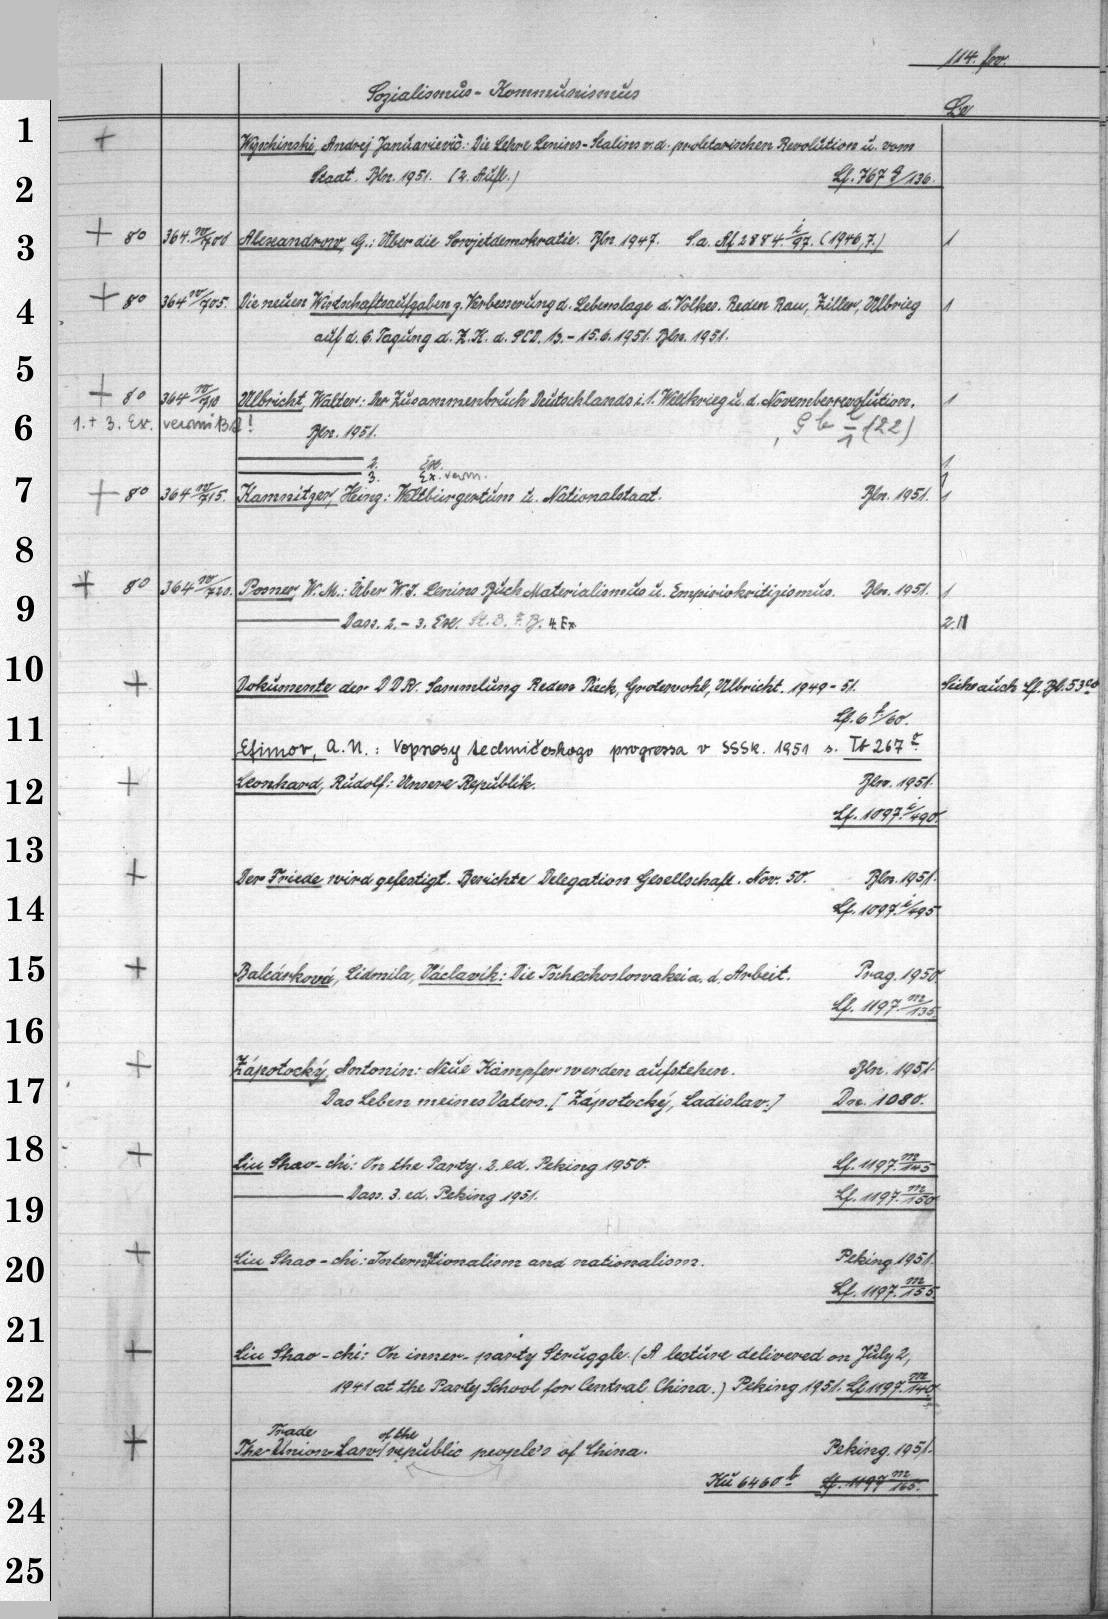 114. fov.
Sozialismus - Kommunismus
Le
1
+ Wyschinski, Andrej Januarievič: Die Lehre Lenins-Stalins v. d. proletarischen Revolution u. vom
2
Staat. Bln. 1951. (2. Aufl.) Lf. 767 g/136.
3
+ 8o 364 w/700 Alexandrow, G.: Über die Sowjetdemokratie. Bln 1947. S.a. Af 2884 i/97. (1946,7.) 1
4
+ 8o 364 w/705. Die neuen Wirtschaftsaufgaben z. Verbesserung d. Lebenslage d. Volkes. Reden Rau, Ziller, Ulbrieg 1
auf d. 6. Tagung d. Z.K. d. SED. 13.-15.6.1951. Bln. 1951.
5
+ 8o 364 w/710 Ulbricht, Walter: Der Zusammenbruch Deutschlands i. 1. Weltkrieg u. d. Novemberrevolution. 1
6
1.+ 3. Ex. verm Bln. 1951. (22)
2. Ex. 1
3. Ex. verm. 1
7
+ 8o 364 w/715. Kamnitzer, Heinz: Weltbürgertum u. Nationalstaat. Bln. 1951. 1
8
+ 8o 364 w/720. Posner, W.M.: Über W.I. Lenins Buch Materialismus u. Empiriokritizismus. Bln. 1951. 1
9
Dass. 2.-3. Ex. 4. Ex. 2.
10
+ Dokumente der DDR. Sammlung Reden Pieck, Grotewohl, Ulbricht. 1949-51. Siehe auch Lf. Bl. 53
Lf. 6 f/60.
11
Efimov, A.N.: Voprosy techničeskogo progressa v SSSR. 1951 s. Tb 267
12
+ Leonhard, Rudolf: Unsere Republik. Bln. 1951.
Lf. 1097 i/490.
13
+ Der Friede wird gefestigt. Berichte Delegation Gesellschaft. Nov. 50. Bln. 1951.
14
Lf. 1097 i/495
15
+ Balcárková, Lidmila, Václavík: Die Tschechoslowakei a. d. Arbeit. Prag. 1950.
Lf. 1197 m/135
16
+ Zápotocký, Antonín: Neue Kämpfer werden aufstehen. Bln. 1951.
17
Das Leben meines Vaters. [Zápotocký, Ladislav.] 1080.
18
+ Liu Shao-chi: On the Party. 2. ed. Peking 1950. Lf. 1197 m/145
19
Dass. 3. ed. Peking 1951. Lf. 1197 m/150
20
+ Liu Shao-chi: Internationalism and nationalism. Peking 1951.
Lf. 1197 m/155
21
+ Liu Shao-chi: On inner-party Struggle. (A lecture delivered on July 2,
22
1941 at the Party School for Central China.) Peking 1951. Lf 1197 m/140
23
+ The Trade Union Law of the republic people's of China. Peking. 1951.
Kü 6460 b Lf. 1197 m/165.
24
25